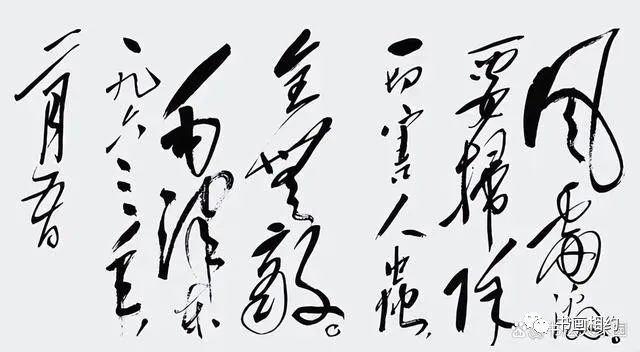 风雷激。
要掃除
一切害人蟲，
全無敌。
毛泽东
一九六三年，
二月五日
书画相约